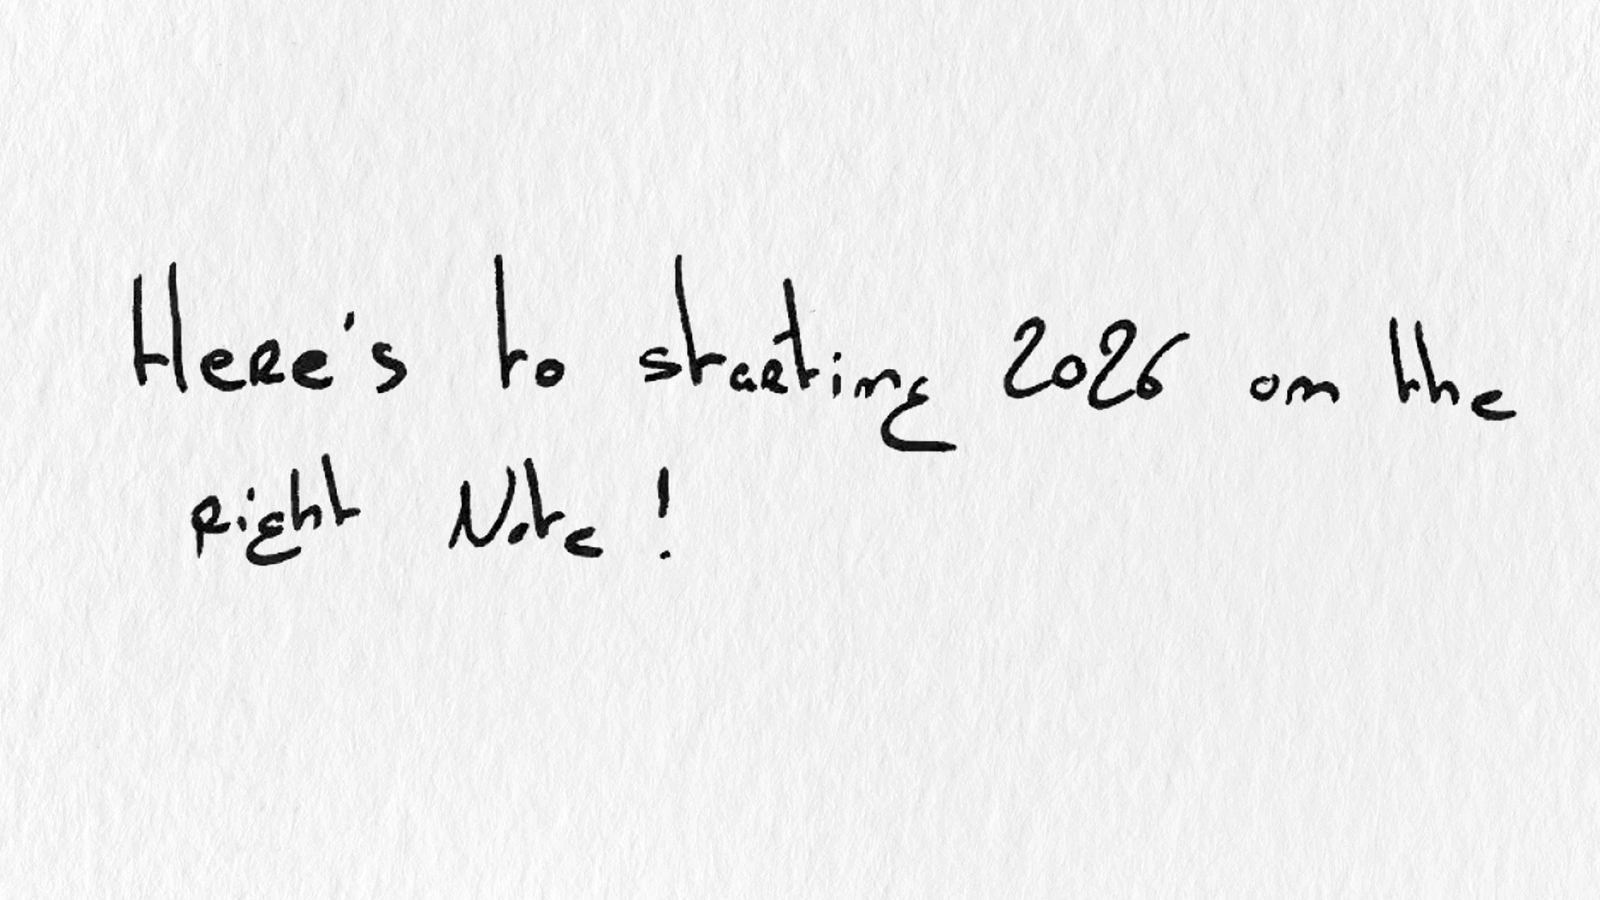 Here's to starting 2026 on the
right Note !